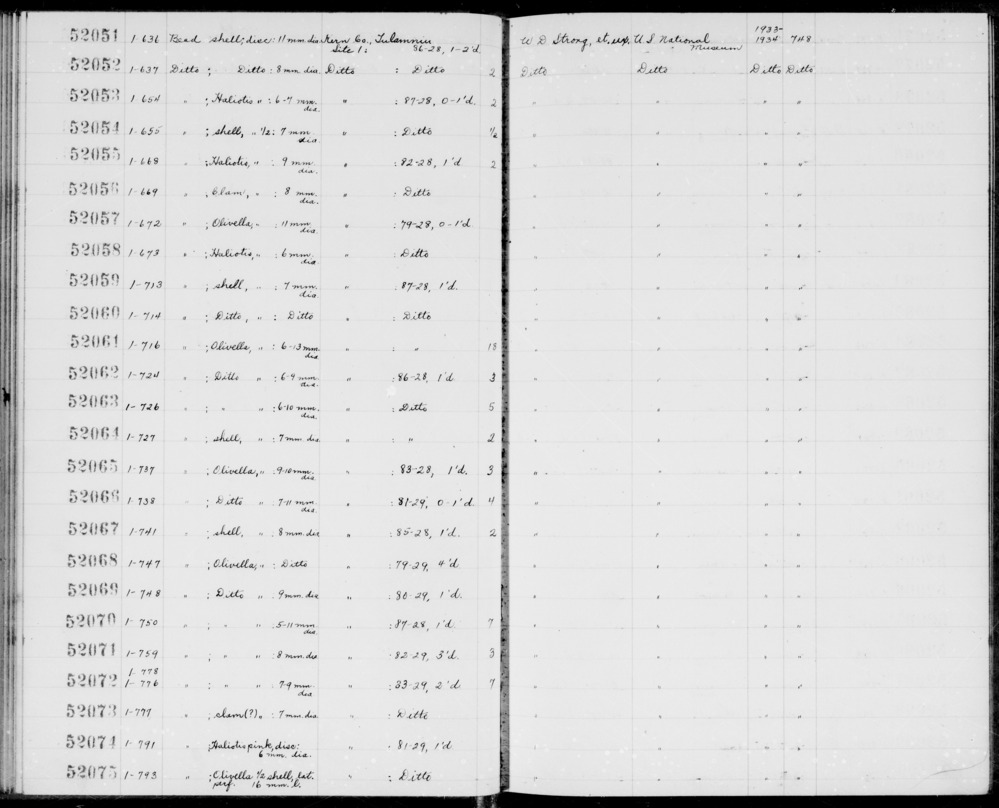 52051 1-636 Bead shell; disc: 11 mm dia Kern Co., Tulamniu Site 1: 86-28, 1-2'd. W D Strong, et, ux. U S National Museum 1933-1934 748
52052 1-637 Ditto ; Ditto : 8 mm. dia. Ditto : Ditto 2 Ditto Ditto Ditto Ditto
52053 1-654 " ; Haliotis " : 6-7 mm. dia. " : 87-28, 0-1'd. 2 " " " "
52054 1-655 " ; shell, " 1/2: 7 mm. dia. " : Ditto 1/2 " " " "
52055 1-668 " ; Haliotis, " : 9 mm. dia. " : 82-28, 1'd 2 " " " "
52056 1-669 " ; Clam, " : 8 mm. dia. " : Ditto " " " "
52057 1-672 " ; Olivella, " : 11 mm. dia. " : 79-28, 0-1'd " " " "
52058 1-673 " ; Haliotis, " : 6 mm. dia. " : Ditto " " " "
52059 1-713 " ; shell, " : 7 mm. dia. " : 87-28, 1'd. " " " "
52060 1-714 " ; Ditto, " : Ditto " : Ditto " " " "
52061 1-716 " ; Olivella, " : 6-13 mm. dia " : " 18 " " " "
52062 1-724 " ; Ditto " : 6-9 mm. dia. " : 86-28, 1'd 3 " " " "
52063 1-726 " ; " " : 6-10 mm. dia. " : Ditto 5 " " " "
52064 1-727 " ; shell, " : 7 mm. dia. " : " 2 " " " "
52065 1-737 " ; Olivella, " : 9-10 mm. dia. " : 83-28, 1'd. 3 " " " "
52066 1-738 " ; Ditto " : 7-11 mm. dia. " : 81-29, 0-1'd 4 " " " "
52067 1-741 " ; shell, " : 8 mm. dia " : 85-28, 1'd. 2 " " " "
52068 1-747 " ; Olivella, " : Ditto " : 79-29, 4'd " " " "
52069 1-748 " ; Ditto " : 9 mm. dia " : 80-29, 1'd. " " " "
52070 1-750 " ; " " : 5-11 mm. dia. " : 87-28, 1'd 7 " " " "
52071 1-759 " ; " " : 8 mm. dia " : 82-29, 3'd. 3 " " " "
52072 1-778 1-776 " ; " " : 7-9 mm. dia " : 83-29, 2'd 7 " " " "
52073 1-777 " ; clam(?) " : 7 mm. dia. " : Ditto " " " "
52074 1-791 " ; Haliotis pink, disc: 6 mm. dia. " : 81-29, 1'd " " " "
52075 1-793 " ; Olivella 1/2 shell, lat. perf. 16 mm. l. " : Ditto " " " "